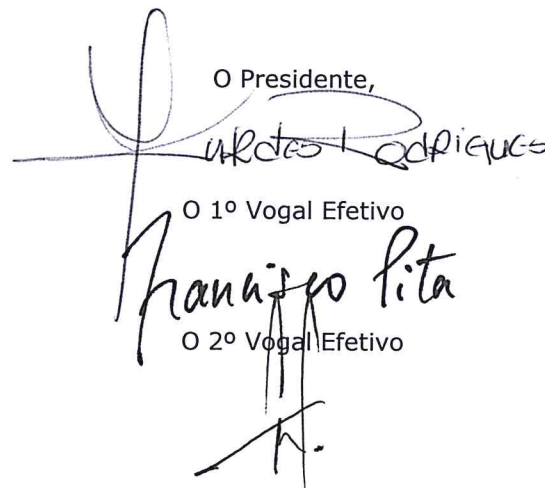 O Presidente,
Lurdes Rodrigues
O 1º Vogal Efetivo
Francisco Pita
O 2º Vogal Efetivo